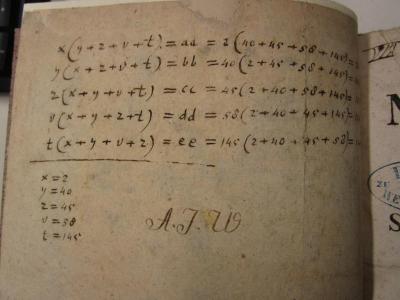 x(y+z+v+t) = aa = 2(40+45+58+145) =
y(x+z+v+t) = bb = 40(2+45+58+145) =
z(x+y+v+t) = cc = 45(2+40+58+145) =
v(x+y+z+t) = dd = 58(2+40+45+145) =
t(x+y+v+z) = ee = 145(2+40+45+58) =
x = 2
y = 40
z = 45
v = 58
t = 145
A.J.W